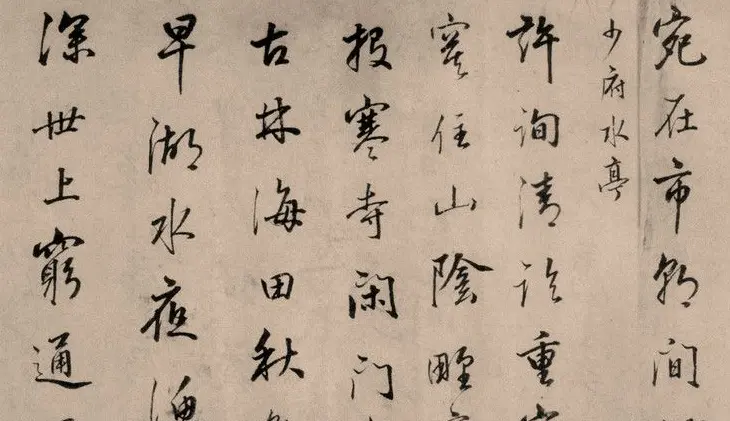 宛在市朝间
少府水亭
许询清论重
寂住山阴野
投寒寺闲门
古林海田秋
早湖水夜渔
深世上穷通